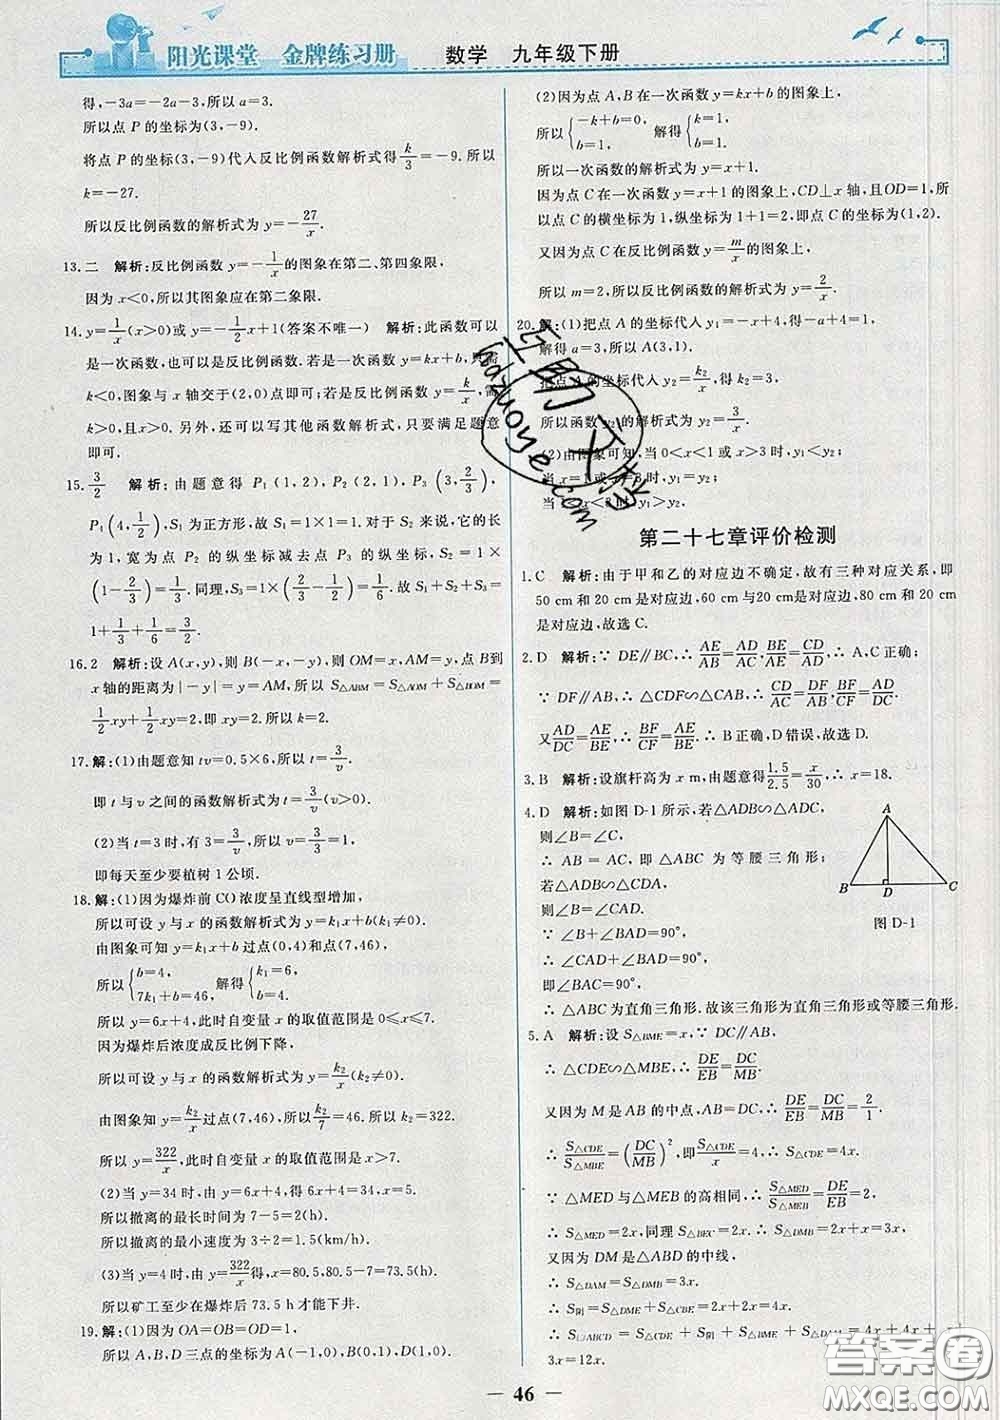 阳光课堂 金牌练习册 数学 九年级下册
得,-3a=-2a-3,所以a=3.
所以点P的坐标为(3,-9).
将点P的坐标(3,-9)代入反比例函数解析式得k/3=-9.所以
k=-27.
所以反比例函数的解析式为y=-27/x.
13.二 解析:反比例函数y=-1/x的图象在第二、第四象限,
因为x<0,所以其图象应在第二象限.
14.y=1/x(x>0)或y=-1/2x+1(答案不唯一) 解析:此函数可以
是一次函数,也可以是反比例函数.若是一次函数y=kx+b,只需
k<0,图象与x轴交于(2,0)点即可;若是反比例函数y=k/x,需
k>0,且x>0.另外,还可以写其他函数解析式,只要满足题意
即可.
15.3/2 解析:由题意得P1(1,2),P2(2,1),P3(3,2/3),
P4(4,1/2),S1为正方形,故S1=1×1=1.对于S2来说,它的长
为1,宽为点P2的纵坐标减去点P3的纵坐标,S2=1×
(1-2/3)=1/3.同理,S3=1×(2/3-1/2)=1/6.故S1+S2+S3=
1+1/3+1/6=3/2.
16.2 解析:设A(x,y),则B(-x,-y),则OM=x,AM=y,点B到
x轴的距离为|-y|=y=AM,所以S△ABM=S△AOM+S△BOM=
1/2xy+1/2xy=2,即xy=2.所以k=2.
17.解:(1)由题意知tv=0.5×6,所以t=3/v.
即t与v之间的函数解析式为t=3/v(v>0).
(2)当t=3时,有3=3/v,所以v=1.
即每天至少要植树1公顷.
18.解:(1)因为爆炸前CO浓度呈直线型增加,
所以可设y与x的函数解析式为y=k1x+b(k1≠0).
由图象可知y=k1x+b过点(0,4)和点(7,46),
所以{b=4, 7k1+b=46. 解得{k1=6, b=4.
所以y=6x+4,此时自变量x的取值范围是0≤x≤7.
因为爆炸后浓度成反比例下降,
所以可设y与x的函数解析式为y=k2/x(k2≠0).
由图象知y=k2/x过点(7,46),所以k2/7=46.所以k2=322.
所以y=322/x,此时自变量x的取值范围是x>7.
(2)当y=34时,由y=6x+4得,6x+4=34,x=5.
所以撤离的最长时间为7-5=2(h).
所以撤离的最小速度为3÷2=1.5(km/h).
(3)当y=4时,由y=322/x得,x=80.5,80.5-7=73.5(h).
所以矿工至少在爆炸后73.5 h才能下井.
19.解:(1)因为OA=OB=OD=1,
所以A,B,D三点的坐标为A(-1,0),B(0,1),D(1,0).
(2)因为点A,B在一次函数y=kx+b的图象上,
所以{-k+b=0, b=1. 解得{k=1, b=1.
所以一次函数的解析式为y=x+1.
因为点C在一次函数y=x+1的图象上,CD⊥x轴,且OD=1,所
以点C的横坐标为1,纵坐标为1+1=2,即点C的坐标为(1,2).
又因为点C在反比例函数y=m/x的图象上,
所以m=2,所以反比例函数的解析式为y=2/x.
20.解:(1)把点A的坐标代入y1=-x+4,得-a+4=1,
解得a=3,所以A(3,1).
把点A的坐标代入y2=k2/x,得k2=3.
所以函数y2的解析式为y2=3/x.
(2)由图象可知,当0<x<1或x>3时,y1<y2;
当x=1或x=3时,y1=y2;
当1<x<3时,y1>y2.
第二十七章评价检测
1.C 解析:由于甲和乙的对应边不确定,故有三种对应关系,即
50 cm和20 cm是对应边,60 cm与20 cm是对应边,80 cm和20 cm
是对应边,故选C.
2.D 解析:∵DE∥BC,∴AE/AB=AD/AC,BE/AE=CD/AD,∴A,C正确;
∵DF∥AB,∴△CDF∽△CAB,∴CD/AC=DF/AB,BF/CF=AD/DC.
又AD/DC=AE/BE,∴BF/CF=AE/BE.∴B正确,D错误,故选D.
3.B 解析:设旗杆高为x m,由题意得1.5/2.5=x/30,∴x=18.
4.D 解析:如图D-1所示,若△ADB∽△ADC,
则∠B=∠C,
∴AB=AC,即△ABC为等腰三角形;
若△ADB∽△CDA,
则∠B=∠CAD.
∵∠B+∠BAD=90°,
∴∠CAD+∠BAD=90°,
即∠BAC=90°.
∴△ABC为直角三角形.故该三角形为直角三角形或等腰三角形.
A
B D C
图D-1
5.A 解析:设S△BME=x,∵DC∥AB,
∴△CDE∽△MBE,∴DE/EB=DC/MB.
又因为M是AB的中点,AB=DC,∴DE/EB=DC/MB=2/1.
∴S△CDE/S△MBE=(DC/MB)²,即S△CDE/x=4,∴S△CDE=4x.
∵△MED与△MEB的高相同,∴S△MED/S△MEB=DE/EB=2,
∴S△MED=2x,同理S△BEC=2x.∴S△DMB=2x+x=3x.
又因为DM是△ABD的中线,
∴S△DAM=S△DMB=3x.
∴S阴=S△DME+S△CBE=2x+2x=4x.
∴S▱ABCD=S△CDE+S阴+S△BME+S△DAM=4x+4x+x+
3x=12x.
互助文档
hdzuoye.com
46
答案圈
MXQE.COM